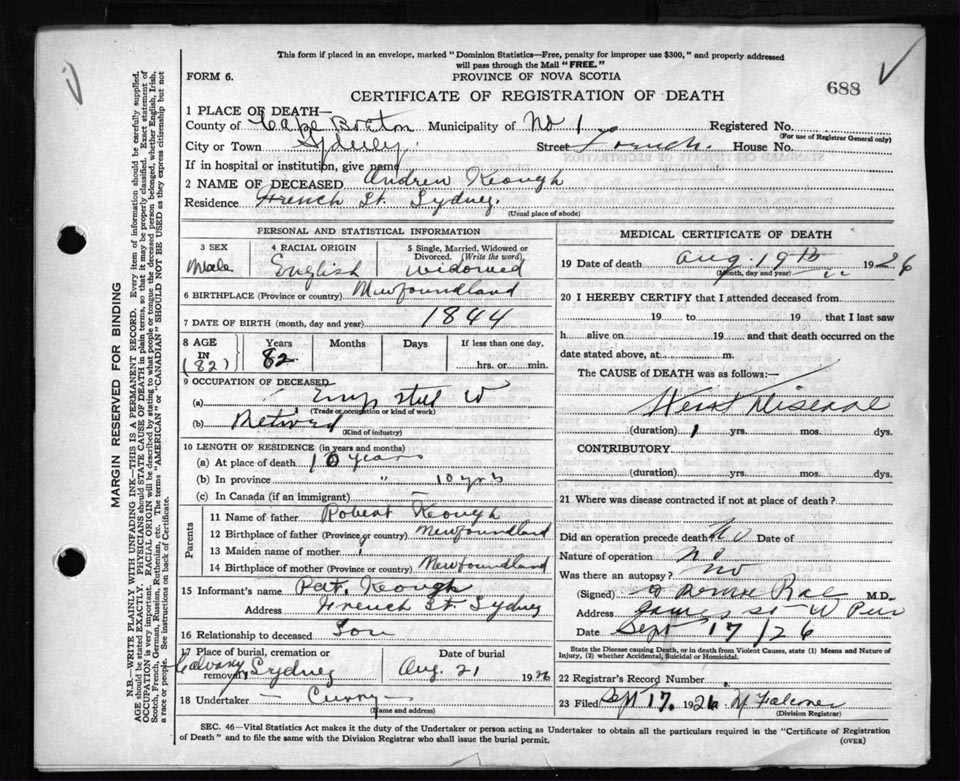 This form if placed in an envelope, marked "Dominion Statistics—Free, penalty for improper use $300," and properly addressed
will pass through the Mail "FREE."
FORM 6.
PROVINCE OF NOVA SCOTIA
688
CERTIFICATE OF REGISTRATION OF DEATH
1 PLACE OF DEATH—
County of Cape Breton Municipality of No 1 Registered No.
(For use of Registrar General only)
City or Town Sydney. Street French. House No.
If in hospital or institution, give name
2 NAME OF DECEASED Andrew Keough
Residence French St. Sydney.
(Usual place of abode)
PERSONAL AND STATISTICAL INFORMATION
3 SEX
Male
4 RACIAL ORIGIN
English
5 Single, Married, Widowed or
Divorced. (Write the word)
widowed
6 BIRTHPLACE (Province or country) Newfoundland
7 DATE OF BIRTH (month, day and year) 1844
8 AGE
IN
(82)
Years
82
Months
Days
If less than one day,
hrs. or min.
9 OCCUPATION OF DECEASED
(a) Emp Steel W
(Trade or occupation or kind of work)
(b) Retired
(Kind of industry)
10 LENGTH OF RESIDENCE (in years and months)
(a) At place of death 10 years
(b) In province " 10 yrs
(c) In Canada (if an immigrant) —
Parents
11 Name of father Robert Keough
12 Birthplace of father (Province or country) Newfoundland
13 Maiden name of mother
14 Birthplace of mother (Province or country) Newfoundland
15 Informant's name Pat. Keough
Address French St. Sydney
16 Relationship to deceased Son
17 Place of burial, cremation or
removal Calvary, Sydney
Date of burial
Aug. 21 1926
18 Undertaker — Curry —
(Name and address)
MEDICAL CERTIFICATE OF DEATH
19 Date of death Aug. 19th 1926
(Month, day and year)
20 I HEREBY CERTIFY that I attended deceased from
19 to 19 that I last saw
h alive on 19 and that death occurred on the
date stated above, at m.
The CAUSE of DEATH was as follows:—
Heart Disease
(duration) 1 yrs. mos. dys.
CONTRIBUTORY
(duration) yrs. mos. dys.
21 Where was disease contracted if not at place of death?
Did an operation precede death? No Date of
Nature of operation? no
Was there an autopsy? no
(Signed) Rae M.D.
Address James St W Pier
Date Sept 17/26
State the Disease causing Death, or in death from Violent Causes, state (1) Means and Nature of
Injury, (2) whether Accidental, Suicidal or Homicidal.
22 Registrar's Record Number
23 Filed Sept 17, 1926 N Falconer
(Division Registrar)
SEC. 46—Vital Statistics Act makes it the duty of the Undertaker or person acting as Undertaker to obtain all the particulars required in the "Certificate of Registration
of Death" and to file the same with the Division Registrar who shall issue the burial permit.
(OVER)
MARGIN RESERVED FOR BINDING
N.B.—WRITE PLAINLY, WITH UNFADING INK—THIS IS A PERMANENT RECORD. Every item of information should be carefully supplied.
AGE should be stated EXACTLY. PHYSICIANS should STATE CAUSE OF DEATH in plain terms, so that it may be properly classified. Exact statement of
OCCUPATION is very important. RACIAL ORIGIN will be described by stating to what people or tongue the deceased person belonged, whether English, Irish,
Scotch, French, German, Russian, Ruthenian, etc. The terms "AMERICAN" or "CANADIAN" SHOULD NOT BE USED as they express citizenship but not
a race or people. See instructions on back of Certificate.